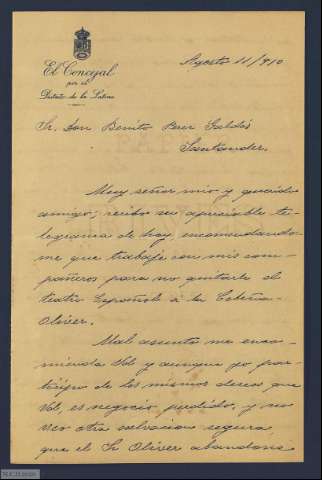 El Concejal
por el
Distrito de la Latina
Agosto 11/910
Sr. Don Benito Perez Galdós
Santander.
Muy señor mio y querido
amigo; recibo su apreciable te-
legrama de hoy, encomendando-
me que trabaje con mis com-
pañeros para no quitarle el
teatro Español á la Cobeña-
Oliver.
Mal asunto me enco-
mienda Vd y aunque yo par-
ticipo de los mismos deseos que
Vd, es negocio perdido, y no
veo otra salvacion segura,
que el Sr Oliver abandone